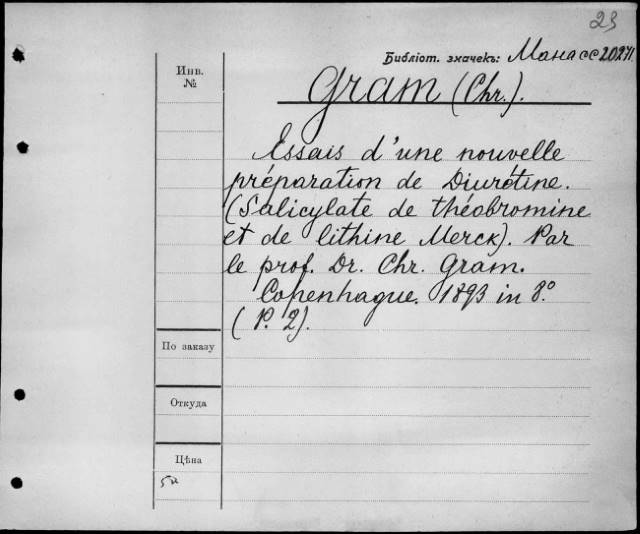 23
Библіот. значекъ: Манасс 20271.
Инв.
№
Gram (Chr.).
Essais d'une nouvelle
préparation de Diurétine.
(Salicylate de théobromine
et de lithine Merck). Par
le prof. Dr. Chr. Gram.
Copenhague. 1893 in 8°.
(P. 2).
По заказу
Откуда
Цѣна